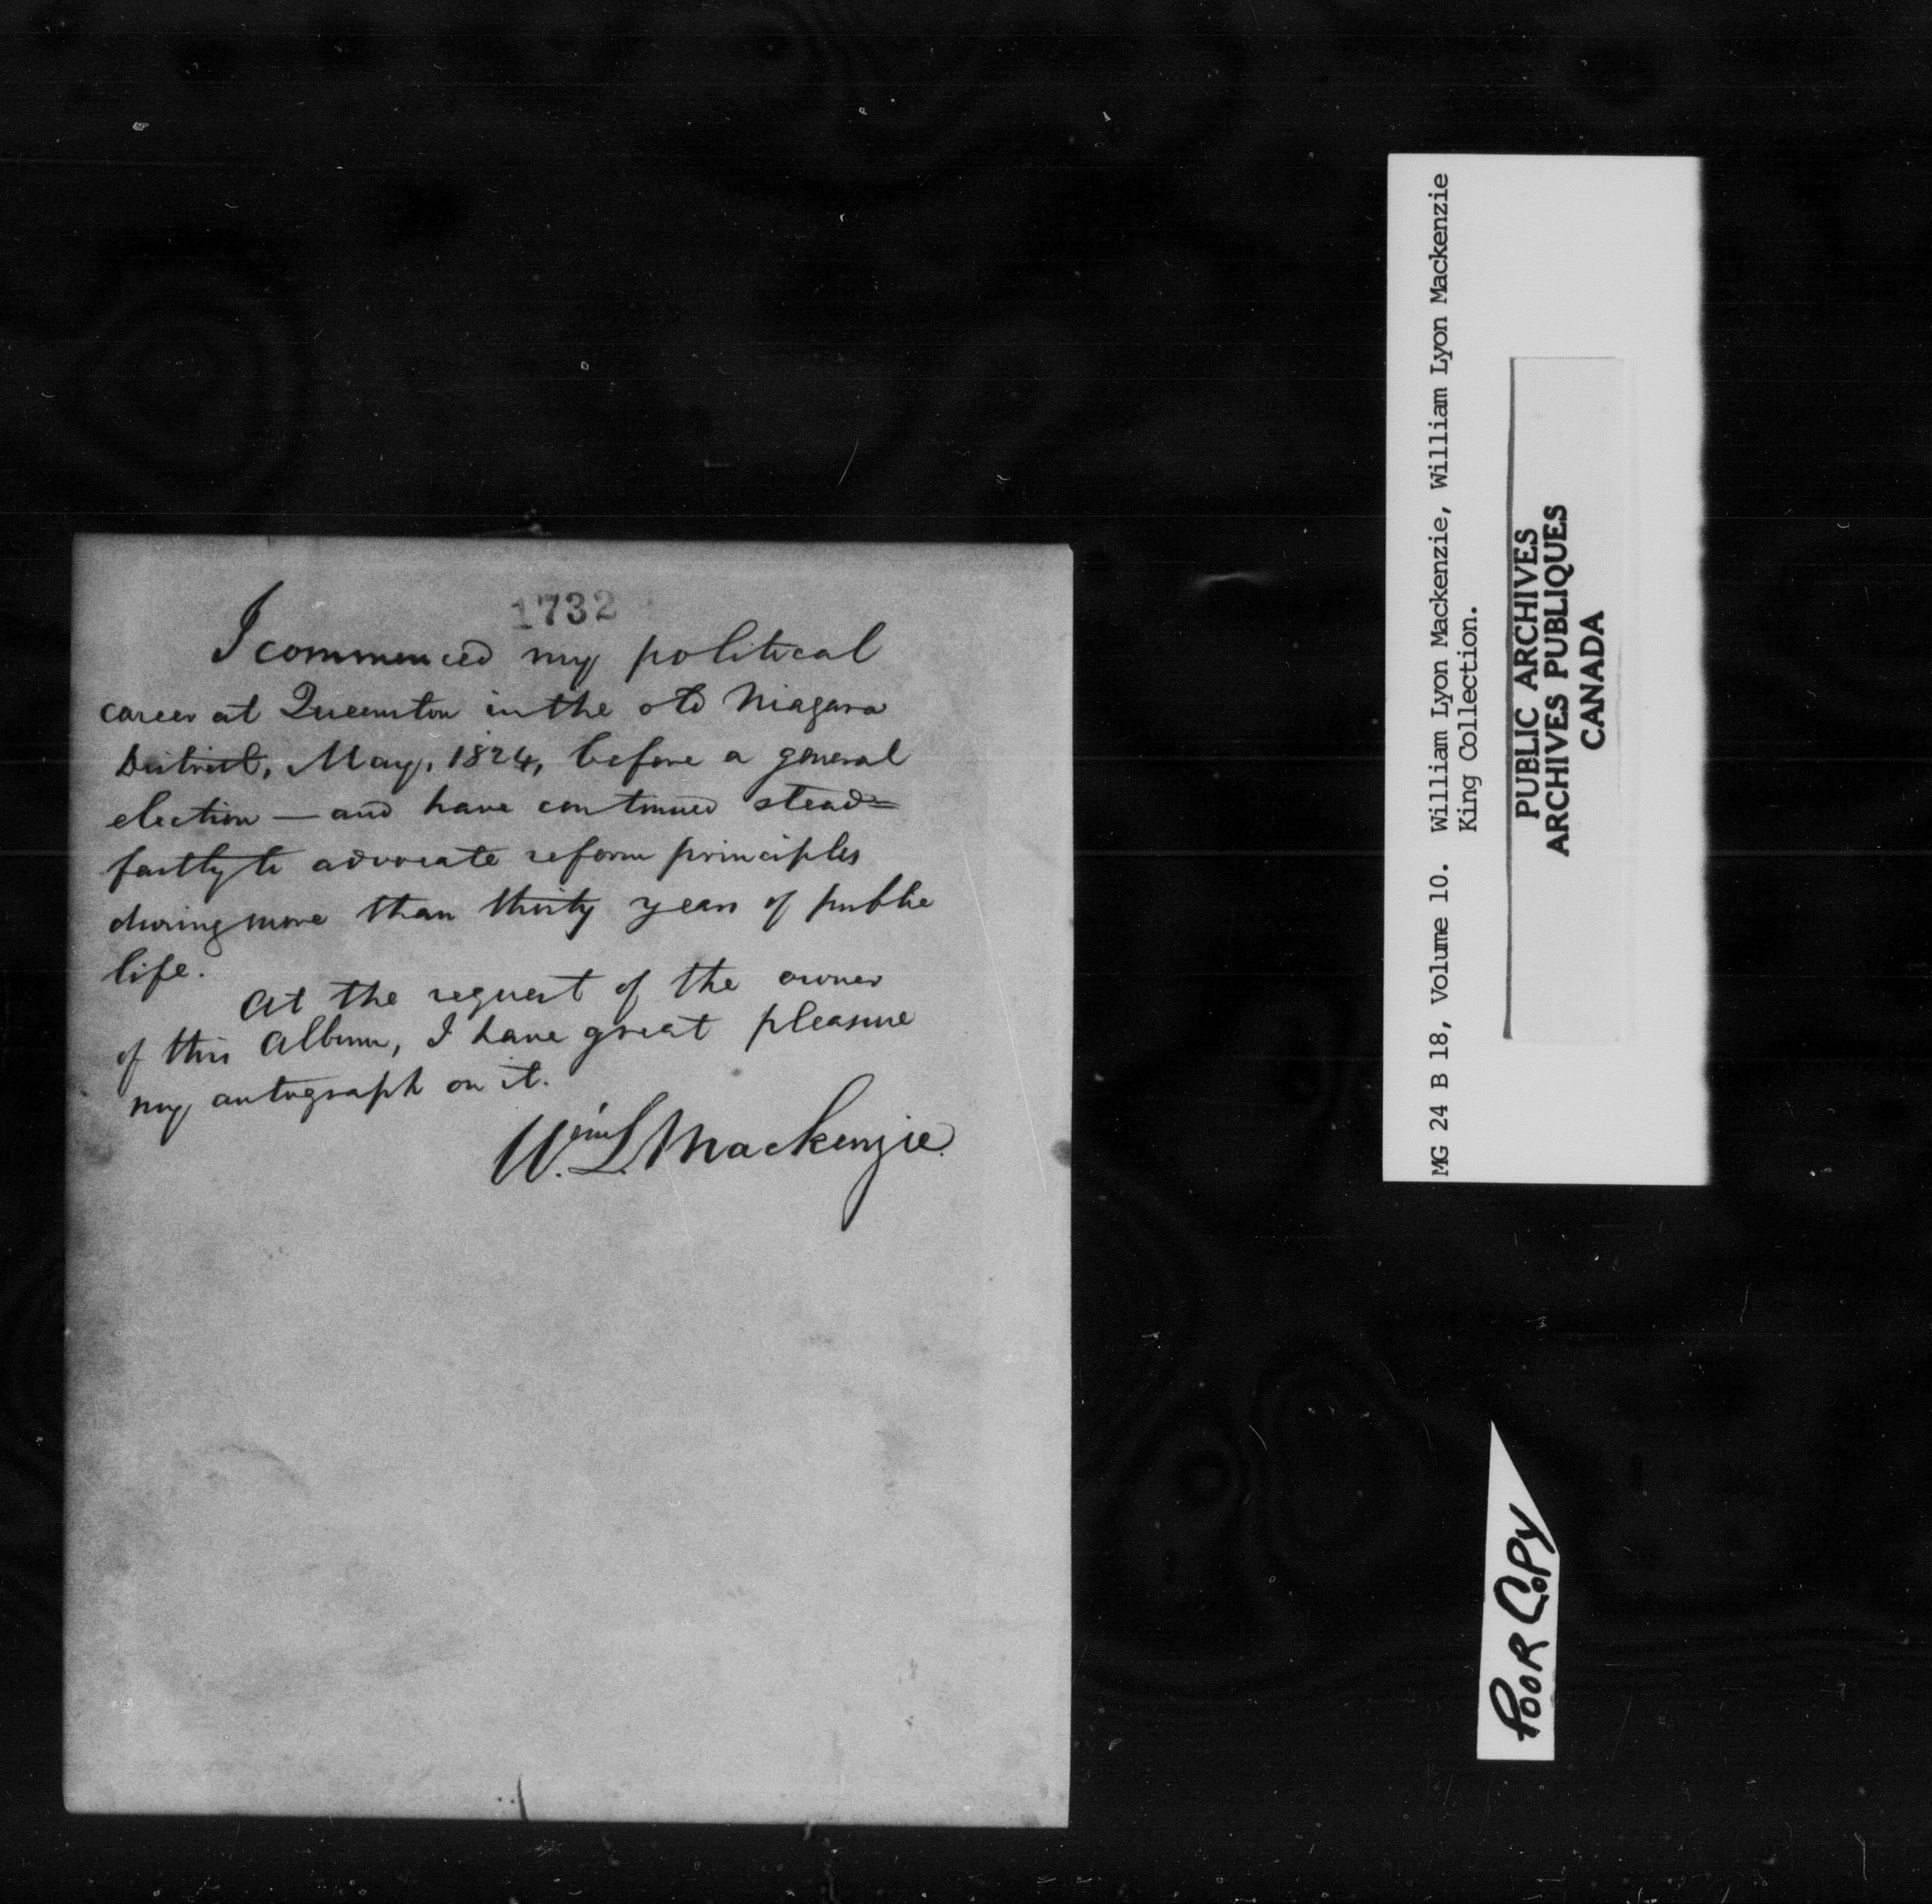 1732
I commenced my political
career at Queenston in the old Niagara
District, May, 1824, before a general
election — and have continued stead=
fastly to advocate reform principles
during more than thirty years of public
life.
At the request of the owner
of this Album, I have great pleasure
my autograph on it.
W. L. Mackenzie.
MG 24 B 18, Volume 10. William Lyon Mackenzie, William Lyon Mackenzie
King Collection.
PUBLIC ARCHIVES
ARCHIVES PUBLIQUES
CANADA
POOR COPY